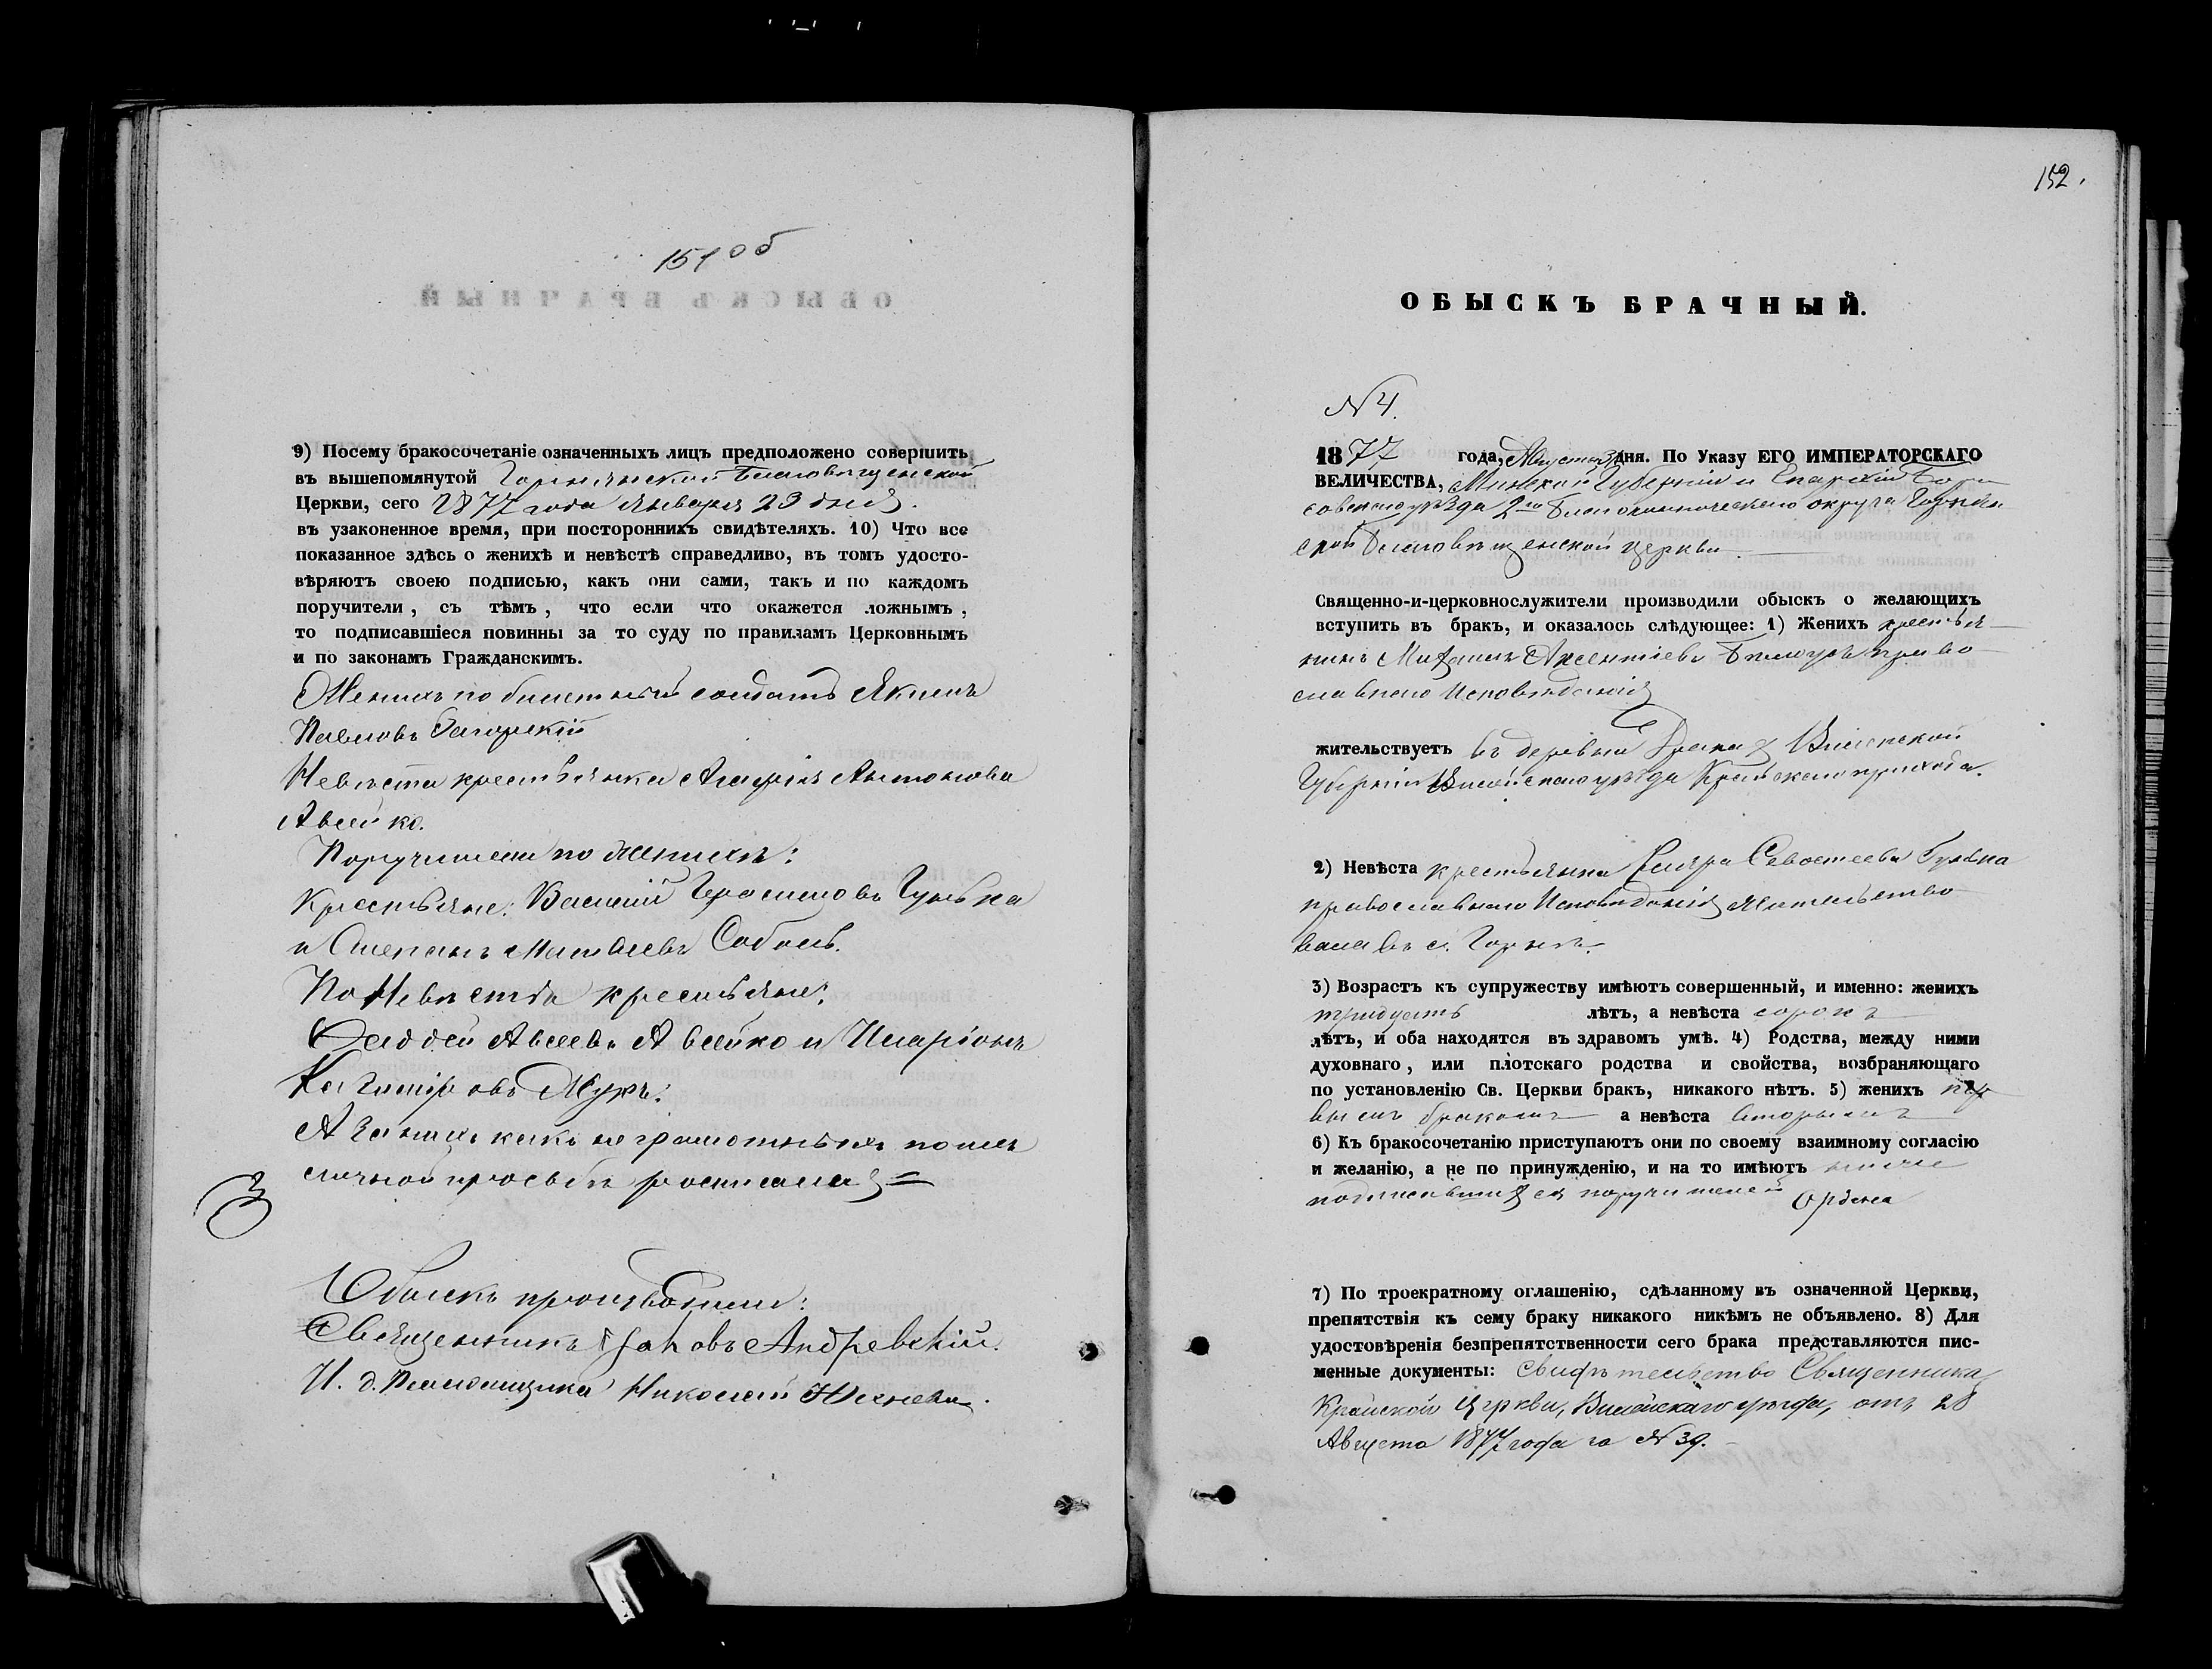 151 об
9) Посему бракосочетаніе означенныхъ лицъ предположено совершить
въ вышепомянутой Горнянской Благовѣщенской
Церкви, сего 1877 года Января 23 дня.
въ узаконенное время, при постороннихъ свидѣтеляхъ. 10) Что все
показанное здѣсь о женихѣ и невѣстѣ справедливо, въ томъ удосто-
вѣряютъ своею подписью, какъ они сами, такъ и по каждомъ
поручители, съ тѣмъ, что если что окажется ложнымъ,
то подписавшіеся повинны за то суду по правиламъ Церковнымъ
и по законамъ Гражданскимъ.
Женихъ по билетный солдатъ Якимъ
Павловъ Загорскій
Невѣста крестьянка Антонова
Авсейко.
Поручители по женихѣ:
Крестьяне: Василій Герасимовъ Гурьба
и Степанъ Матвеевъ Соболь.
По Невѣстѣ крестьяне:
Фаддей Авсеевъ Авсейко и Иларіонъ
Казиміровъ Жукъ.
А за нихъ какъ неграмотныхъ по ихъ
личной просьбѣ росписался
Обыскъ производили:
Священникъ Іаковъ Андревскій.
И. д. Псаломщика Николай
152.
ОБЫСКЪ БРАЧНЫЙ.
N 4.
1877 года, Августа дня. По Указу ЕГО ИМПЕРАТОРСКАГО
ВЕЛИЧЕСТВА, Минской Губерніи и Епархіи Бори
совскаго уѣзда 2го Благочинническаго округа Горнян
ской Благовѣщенской церкви.
Священно-и-церковнослужители производили обыскъ о желающихъ
вступить въ бракъ, и оказалось слѣдующее: 1) Женихъ крестья
нинъ Михаилъ Аксентіевъ Бѣлоусъ право
славнаго Исповѣданія
жительствуетъ въ деревни Виленской
Губерніи Вилейскаго уѣзда Крайскаго прихода.
2) Невѣста крестьянка Севостеева Гурьба
православнаго Исповѣданія жительство
вала въ с. Горнѣ.
3) Возрастъ къ супружеству имѣютъ совершенный, и именно: женихъ
тридцать лѣтъ, а невѣста сорокъ
лѣтъ, и оба находятся въ здравомъ умѣ. 4) Родства, между ними
духовнаго, или плотскаго родства и свойства, возбраняющаго
по установленію Св. Церкви бракъ, никакого нѣтъ. 5) женихъ пер
вымъ бракомъ а невѣста вторымъ
6) Къ бракосочетанію приступаютъ они по своему взаимному согласію
и желанію, а не по принужденію, и на то имѣютъ
подписавшихся поручителей
7) По троекратному оглашенію, сдѣланному въ означенной Церкви,
препятствія къ сему браку никакого никѣмъ не объявлено. 8) Для
удостовѣренія безпрепятственности сего брака представляются пис-
менные документы: Свидѣтельство Священника
Крайской Церкви, Вилейскаго уѣзда, отъ 28
Августа 1877 года за N 39.